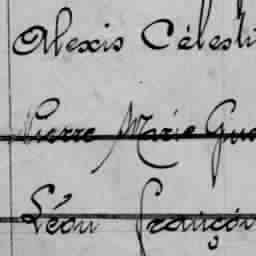 Alexis Célesti
Pierre Marie Gus
Léon Françoi